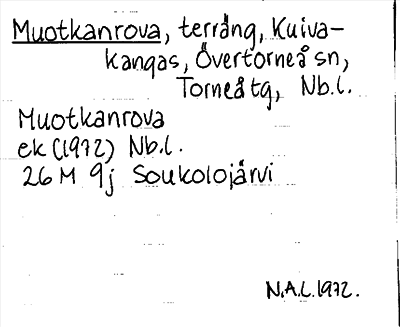 Muotkanrova, terräng, Kuiva-
kangas, Övertorneå sn,
Torneå tg, Nb.l.
Muotkanrova
ek (1972) Nb.l.
26 M 9j Soukolojärvi
N.A.L. 1972.